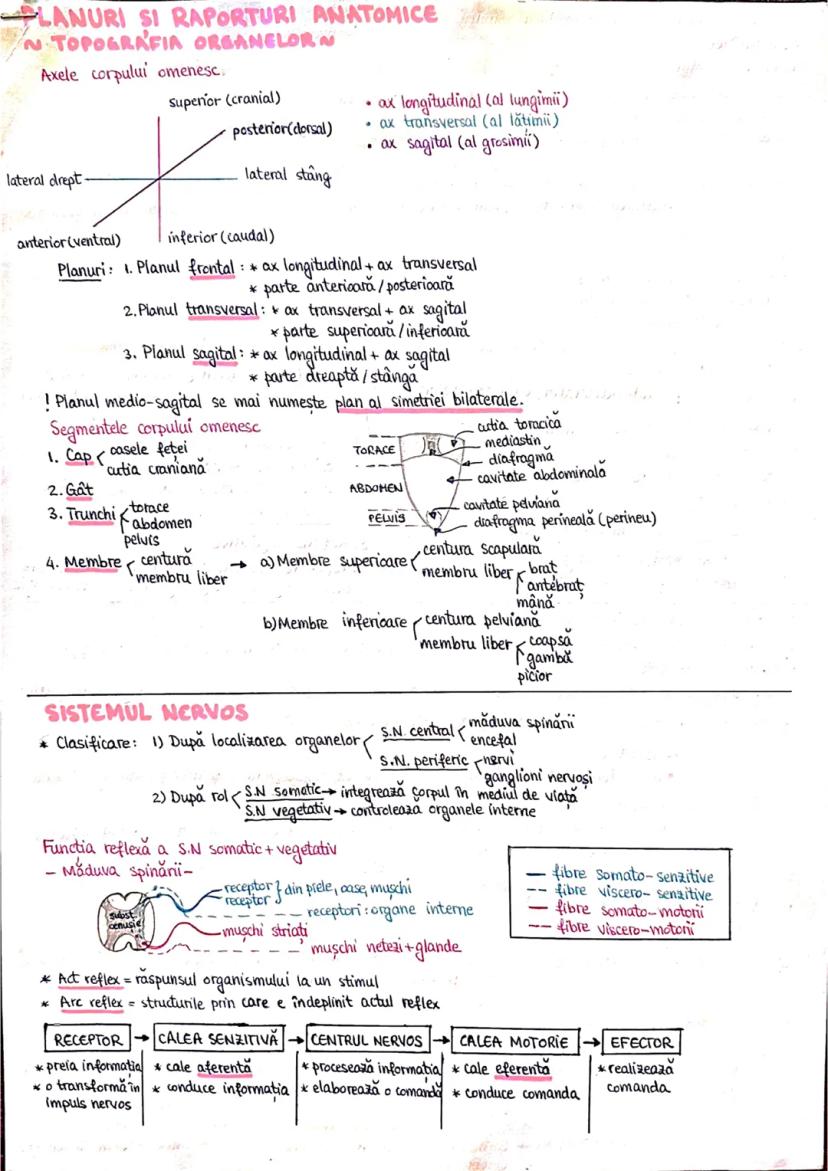 PLANURI ȘI RAPORTURI ANATOMICE
~ TOPOGRAFIA ORGANELOR ~
Axele corpului omenesc.
superior (cranial)
posterior (dorsal)
lateral drept
lateral stâng
anterior (ventral)
inferior (caudal)
• ax longitudinal (al lungimii)
• ax transversal (al lățimii)
• ax sagital (al grosimii)
Planuri: 1. Planul frontal: * ax longitudinal + ax transversal
* parte anterioară / posterioară
2. Planul transversal: * ax transversal + ax sagital
* parte superioară / inferioară
3. Planul sagital: * ax longitudinal + ax sagital
* parte dreaptă / stângă
! Planul medio-sagital se mai numește plan al simetriei bilaterale.
Segmentele corpului omenesc
1. Cap
oasele feței
cutia craniană
2. Gât
3. Trunchi
torace
abdomen
pelvis
4. Membre
centură
membru liber
TORACE
ABDOMEN
PELVIS
cutia toracică
mediastin
diafragmă
cavitate abdominală
cavitate pelviană
diafragma perineală (perineu)
→ a) Membre superioare
centura scapulară
membru liber
braț
antebraț
mână
b) Membre inferioare
centura pelviană
membru liber
coapsă
gambă
picior
SISTEMUL NERVOS
* Clasificare: 1) După localizarea organelor
S.N. central
măduva spinării
encefal
S.N. periferic
nervi
ganglioni nervoși
2) După rol
S.N somatic → integrează corpul în mediul de viață
S.N vegetativ → controleaza organele interne
Functia reflexă a S.N somatic + vegetativ
- Măduva spinării -
subst. cenușie
receptor } din piele, oase, mușchi
receptor
receptori: organe interne
mușchi striați
mușchi netezi + glande
— fibre somato-senzitive
-- fibre viscero-senzitive
— fibre somato-motorii
-- fibre viscero-motorii
* Act reflex = răspunsul organismului la un stimul
* Arc reflex = structurile prin care e îndeplinit actul reflex
RECEPTOR → CALEA SENZITIVĂ → CENTRUL NERVOS → CALEA MOTORIE → EFECTOR
* preia informația
* o transformă în impuls nervos
* cale aferentă
* conduce informația
* procesează informația
* elaborează o comandă
* cale eferentă
* conduce comanda
* realizează comanda